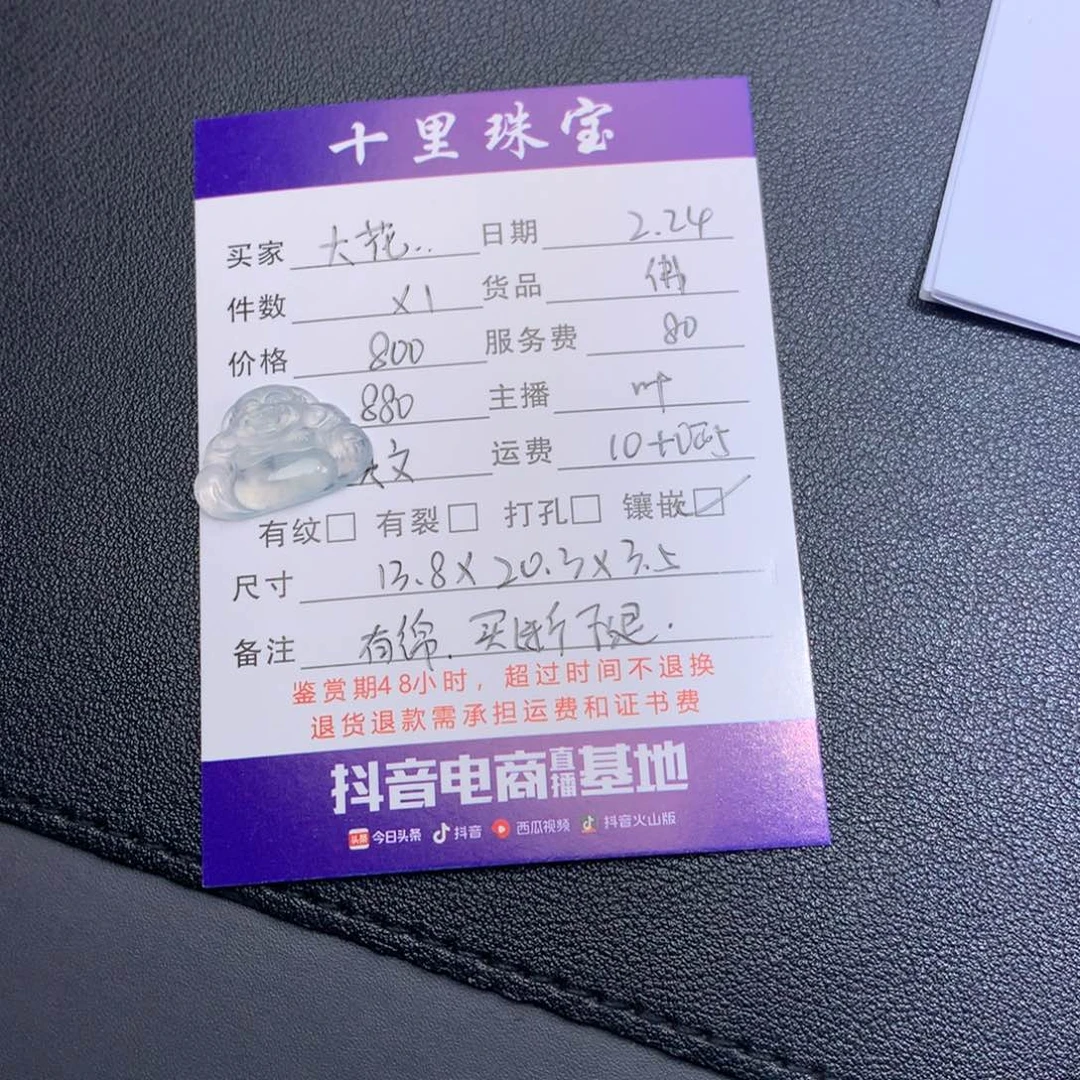 十里珠宝
买家 大花.. 日期 2.24
件数 X1 货品 佛
价格 800 服务费 80
880 主播
文 运费 10+
有纹□ 有裂□ 打孔□ 镶嵌☑
尺寸 13.8X20.3X3.5
备注 有绵. 买断不退.
鉴赏期48小时，超过时间不退换
退货退款需承担运费和证书费
抖音电商直播基地
头条 今日头条 抖音 西瓜视频 抖音火山版